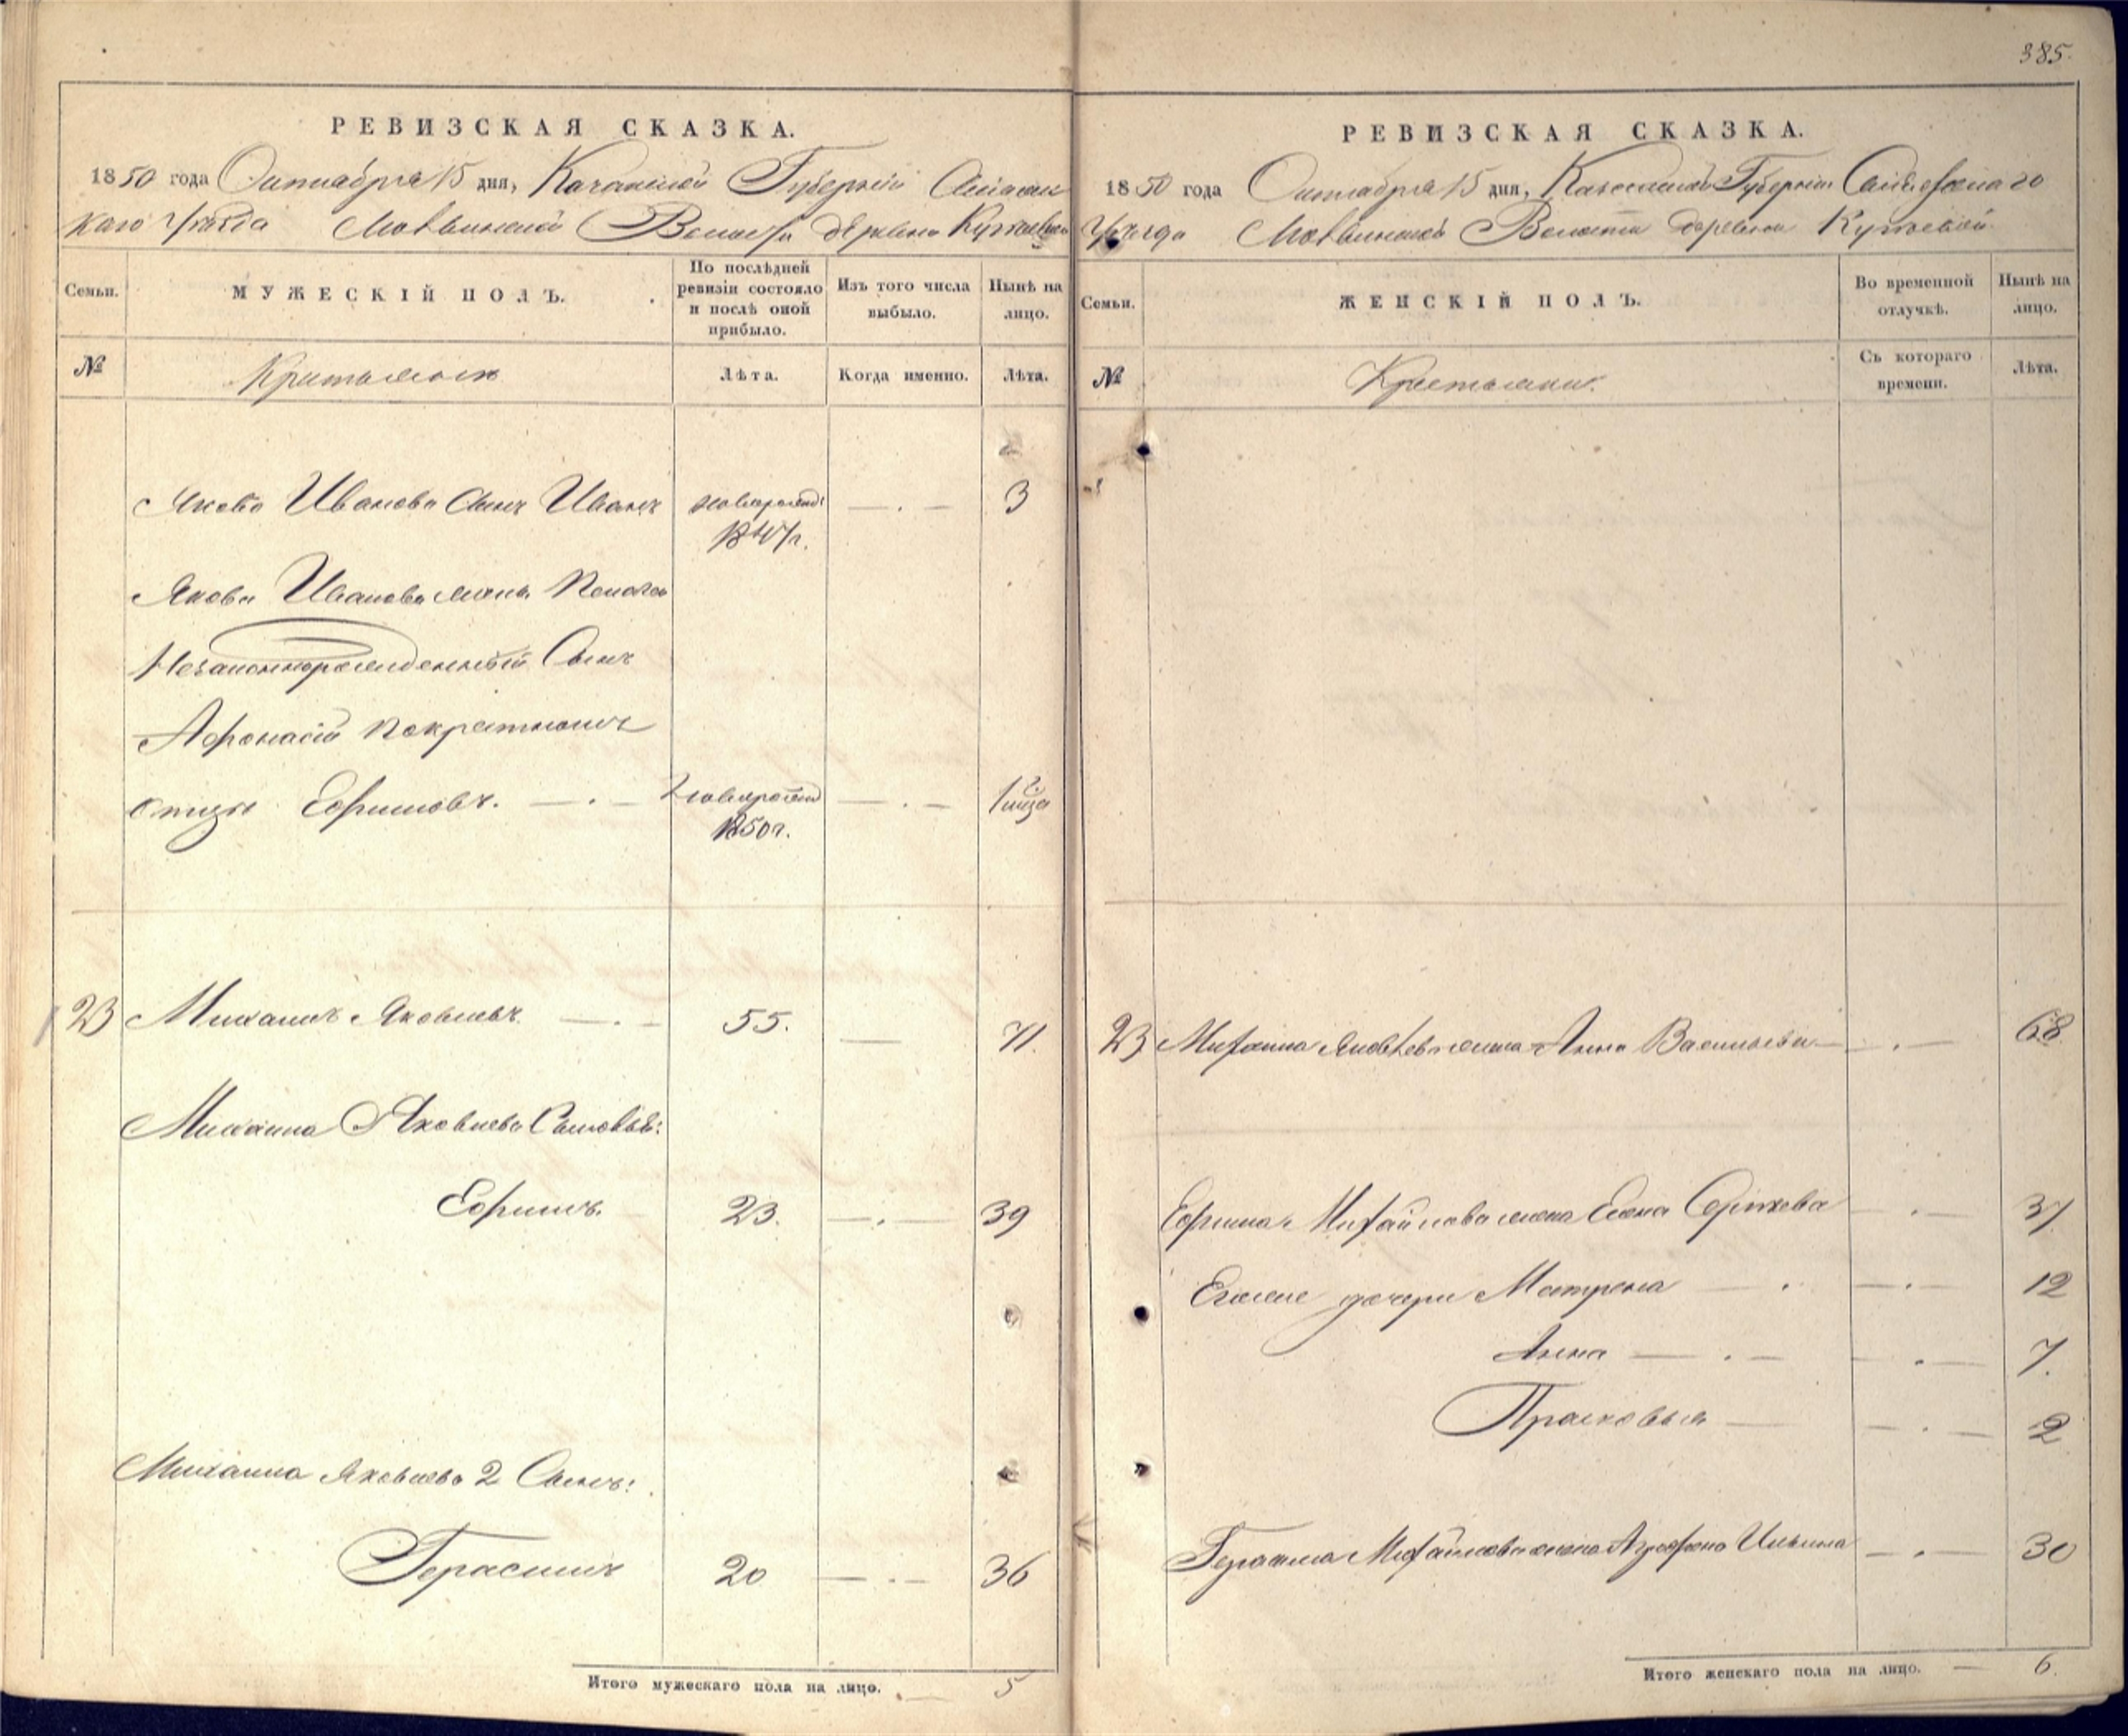 385.
РЕВИЗСКАЯ СКАЗКА.
1850 года Октября 15 дня, Казанской Губернии
каго Уезда Волости деревни
Семьи.
МУЖЕСКІЙ ПОЛЪ.
По послѣдней ревизіи состояло и послѣ оной прибыло.
Изъ того числа выбыло.
Нынѣ на лицо.
№
Крестьянъ
Лѣта.
Когда именно.
Лѣта.
Якова Иванова сынъ Иванъ новорожд: — . — 3
1847г.
Якова Иванова жены
Незаконнорожденный Сынъ
Афонасій
отцу Ефимовъ. — . — новорожд — . — 1
1850г.
23 Михаилъ Яковлевъ — . — 55. — 71.
Михаила Яковлева Сыновья:
Ефимъ. 23. — . — 39
Михаила Яковлева 2 Сынъ:
Герасимъ 20 — . — 36
Итого мужескаго пола на лицо. — 5
РЕВИЗСКАЯ СКАЗКА.
1850 года Октября 15 дня, Казанской Губерніи
Уезда Волости деревни
Семьи.
ЖЕНСКІЙ ПОЛЪ.
Во временной отлучкѣ.
Нынѣ на лицо.
№
Крестьянки.
Съ котораго времени.
Лѣта.
23 Михаила Яковлева жена Анна Васильева — . — 68
Ефима Михайлова жена Елена Сергѣева — . — 37
Егоже дочери Матрена — . — . — 12
Анна — . — — . — 7.
Прасковья — — . — 2
Герасима Михайлова жена Аграфена Ильина — . — 30
Итого женскаго пола на лицо. — 6.